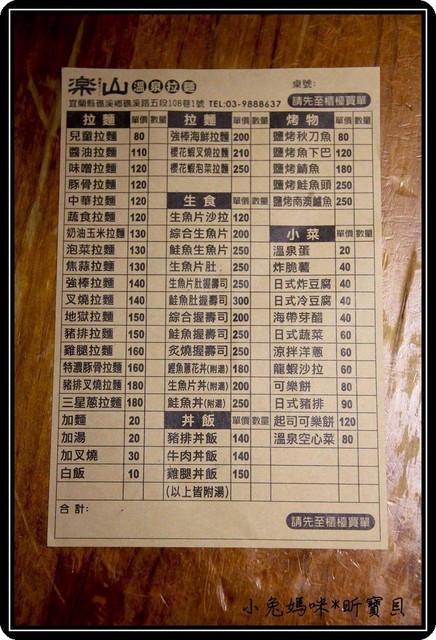 楽山 溫泉拉麵
桌號:
宜蘭縣礁溪鄉礁溪路五段108巷1號 TEL:03-9888637
請先至櫃檯買單
拉麵 單價 數量
兒童拉麵 80
醬油拉麵 110
味噌拉麵 120
豚骨拉麵 120
中華拉麵 120
蔬食拉麵 120
奶油玉米拉麵 130
泡菜拉麵 130
焦蒜拉麵 130
強棒拉麵 140
叉燒拉麵 140
地獄拉麵 150
豬排拉麵 150
雞腿拉麵 160
特濃豚骨拉麵 160
豬排叉燒拉麵 180
三星蔥拉麵 180
加麵 20
加湯 20
加叉燒 30
白飯 10
拉麵 單價 數量
強棒海鮮拉麵 200
櫻花蝦叉燒拉麵 210
櫻花蝦泡菜拉麵 250
生食 單價 數量
生魚片沙拉 120
綜合生魚片 200
鮭魚生魚片 250
生魚片肚 250
生魚片肚握壽司 250
鮭魚肚握壽司 300
綜合握壽司 200
鮭魚握壽司 250
炙燒握壽司 250
鰹魚蔥花丼(附湯) 180
生魚片丼(附湯) 200
鮭魚丼(附湯) 250
丼飯 單價 數量
豬排丼飯 140
牛肉丼飯 140
雞腿丼飯 150
(以上皆附湯)
烤物 單價 數量
鹽烤秋刀魚 80
鹽烤魚下巴 120
鹽烤鯖魚 180
鹽烤鮭魚頭 250
鹽烤南澳鱸魚 250
小菜 單價 數量
溫泉蛋 20
炸脆薯 40
日式炸豆腐 40
日式冷豆腐 40
海帶芽醋 40
日式蔬菜 60
涼拌洋蔥 60
龍蝦沙拉 60
可樂餅 80
日式豬排 90
起司可樂餅 120
溫泉空心菜 80
合計:
請先至櫃檯買單
小兔媽咪*昕寶貝